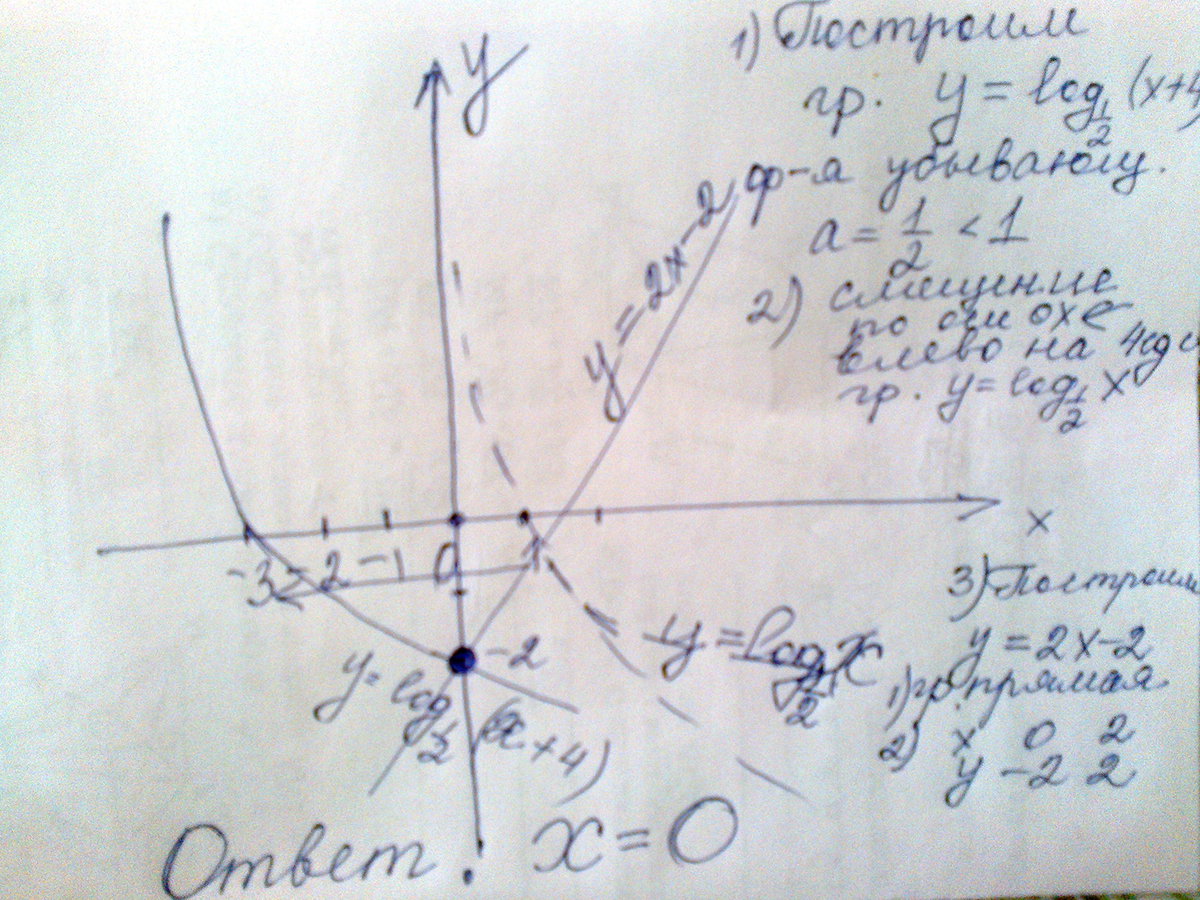 1) Построим
гр. y = log 1/2 (x+4
ф-я убывающ.
a = 1/2 < 1
2) смещение
по оси ox ←
влево на 4ед
гр. y = log 1/2 x
y
y = 2x-2
x
-3 -2 -1 0 1
-2
y = log 1/2 x
y = log 1/2 (x+4)
3) Построим
y = 2x-2
1) гр. прямая
2) x 0 2
y -2 2
Ответ. x = 0